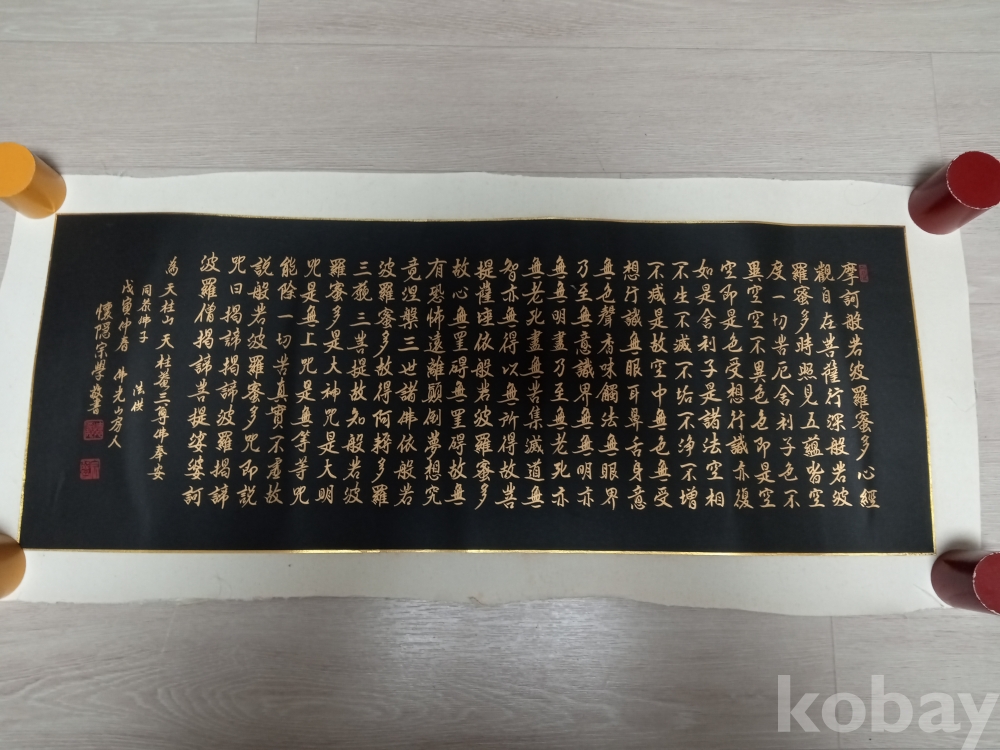 摩訶般若波羅蜜多心經
觀自在菩薩行深般若波
羅蜜多時照見五蘊皆空
度一切苦厄舍利子色不
異空空不異色色即是空
空即是色受想行識亦復
如是舍利子是諸法空相
不生不滅不垢不淨不增
不減是故空中無色無受
想行識無眼耳鼻舌身意
無色聲香味觸法無眼界
乃至無意識界無無明亦
無無明盡乃至無老死亦
無老死盡無苦集滅道無
智亦無得以無所得故菩
提薩埵依般若波羅蜜多
故心無罣碍無罣碍故無
有恐怖遠離顛倒夢想究
竟涅槃三世諸佛依般若
波羅蜜多故得阿耨多羅
三藐三菩提故知般若波
羅蜜多是大神咒是大明
咒是無上咒是無等等咒
能除一切苦真實不虛故
說般若波羅蜜多咒即說
咒曰揭諦揭諦波羅揭諦
波羅僧揭諦菩提娑婆訶
為 天柱山 天柱菴 三尊佛奉安
同參佛子
戊寅 佛春 佛光山房人
懷隱 宗學 敬書
kobay